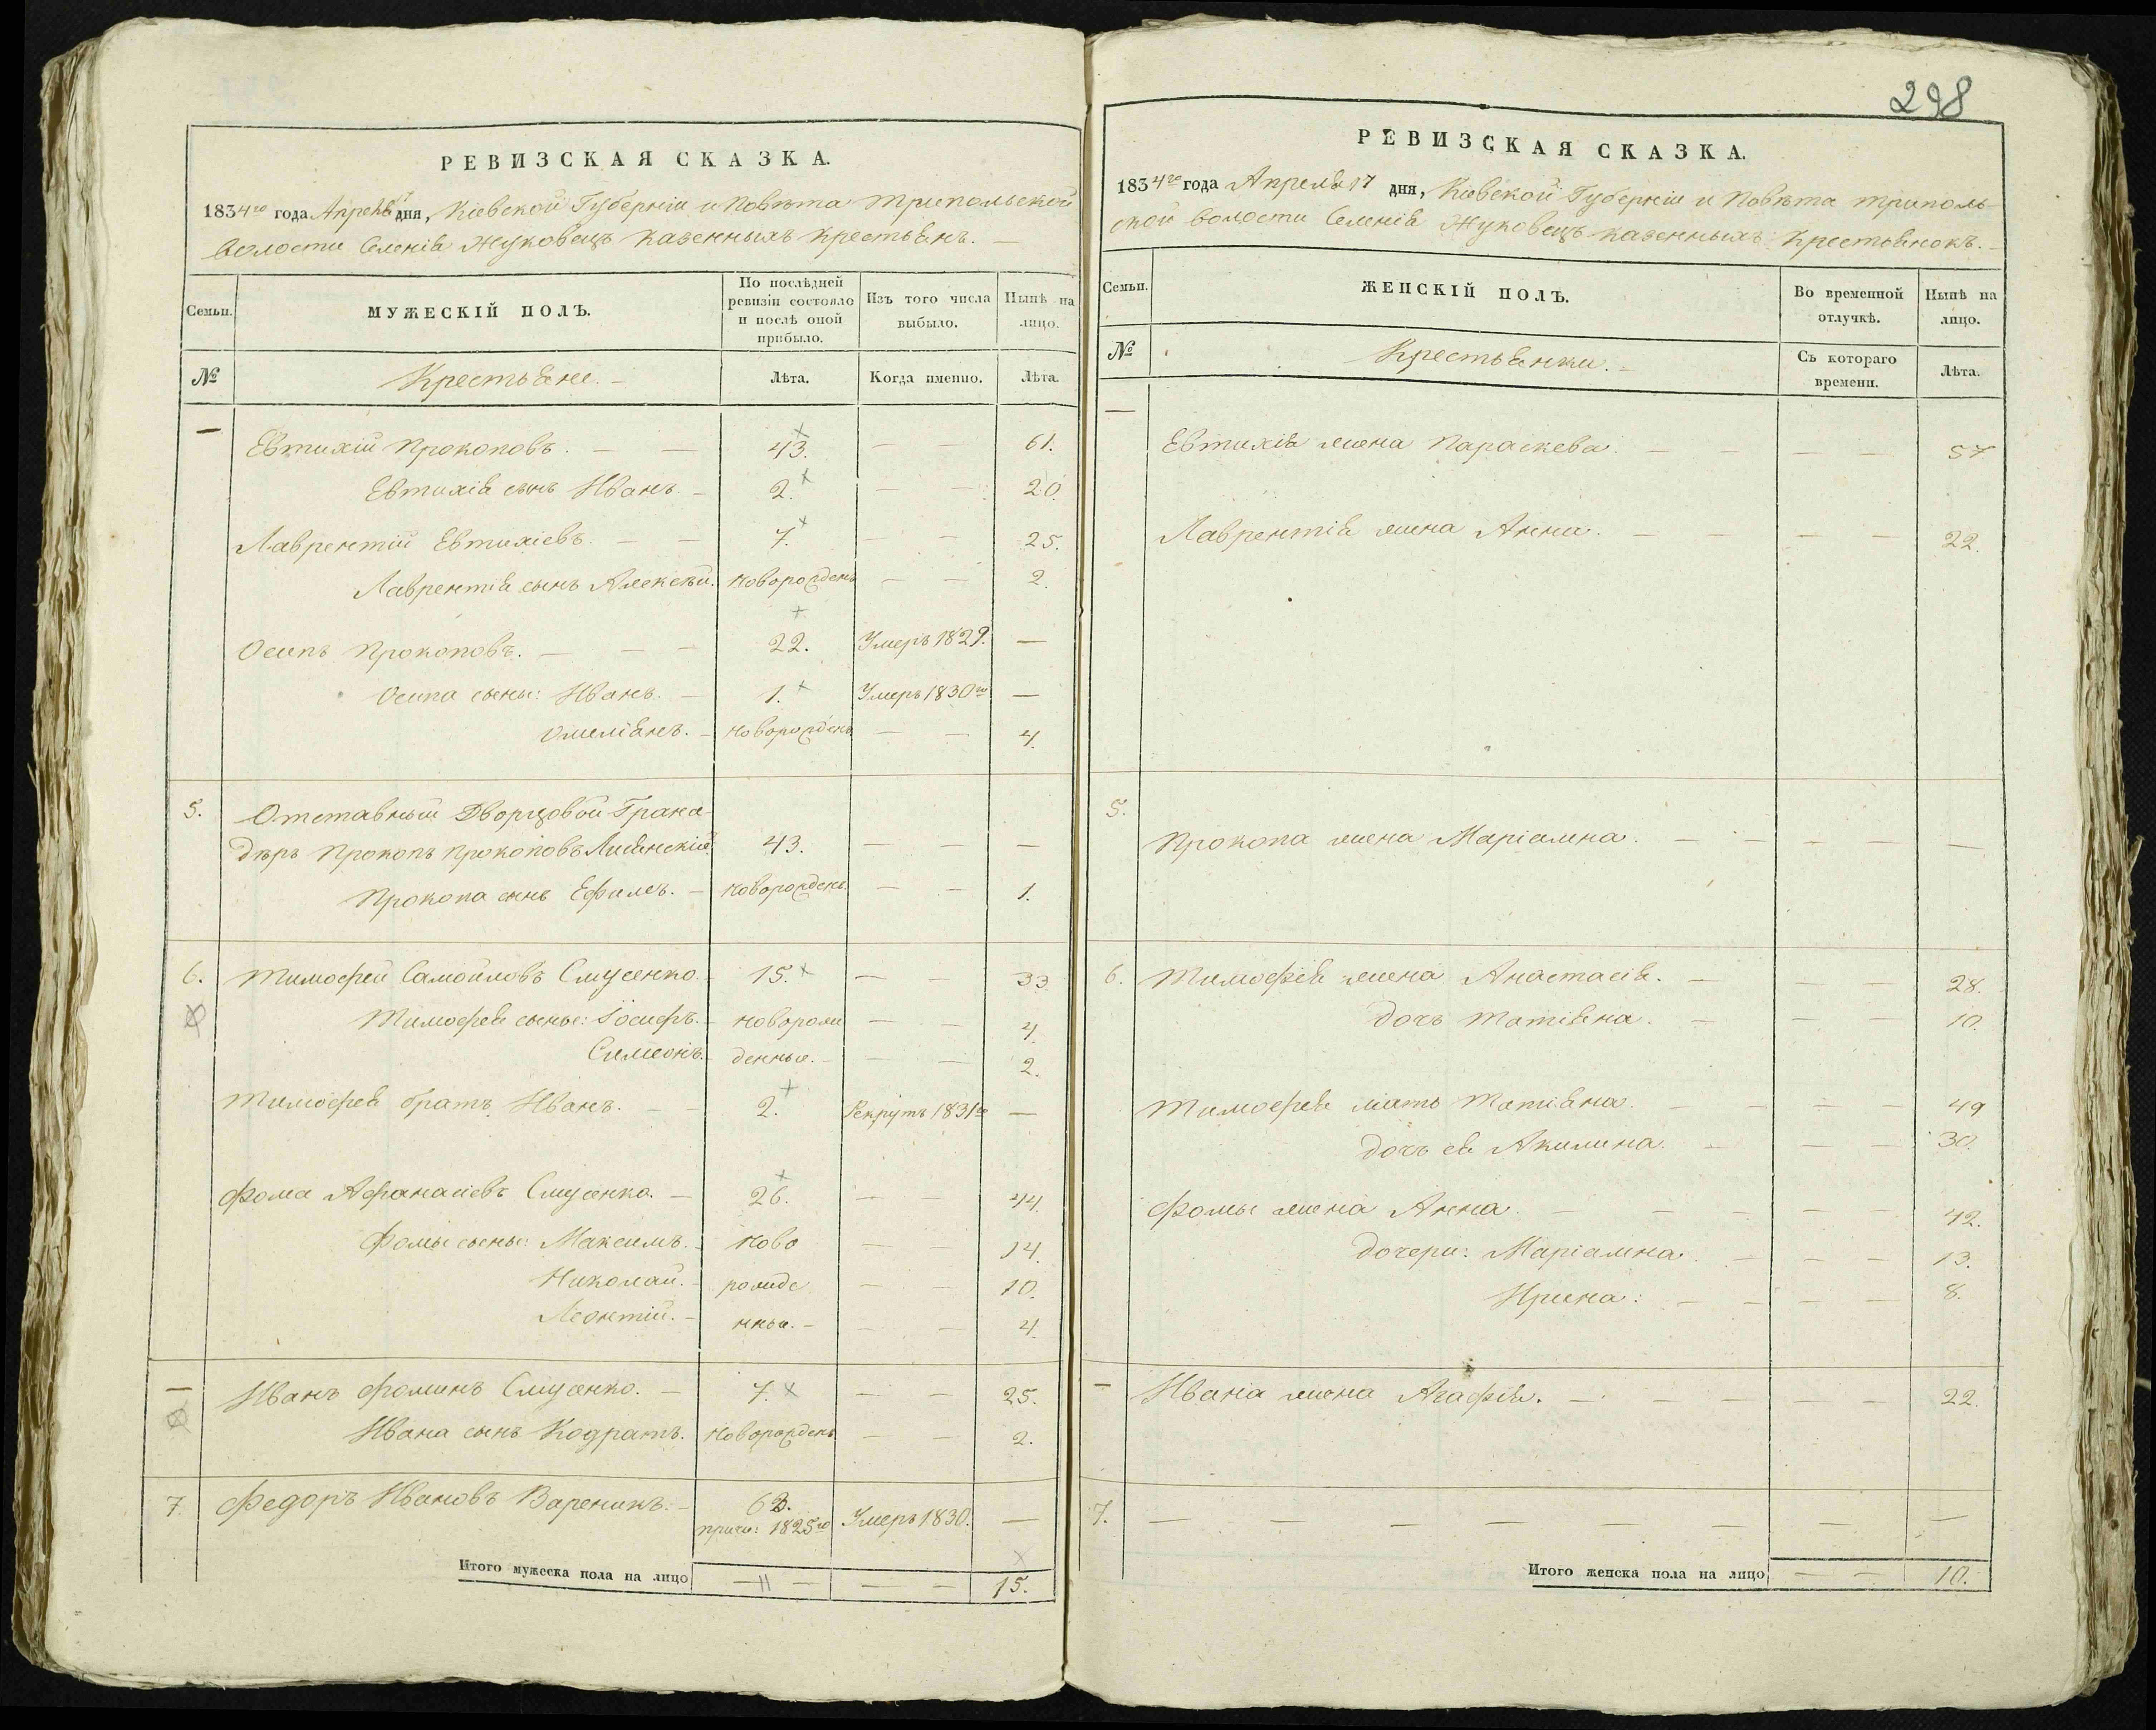 298
РЕВИЗСКАЯ СКАЗКА.
1834го года Апреля 17 дня, Кіевской Губерніи и Повѣта Трипольской
волости Селенія Жуковець казенныхъ крестьянъ. —
Семьи. МУЖЕСКІЙ ПОЛЪ. По послѣдней ревизіи состояло и послѣ оной прибыло. Изъ того числа выбыло. Нынѣ на лицо.
№ Крестьяне. — Лѣта. Когда именно. Лѣта.
— Евтихій Прокоповъ. — — 43. — — 61.
Евтихія сынъ Иванъ — 2. — — 20.
Лаврентій Евтихіевъ. — — 7. — — 25.
Лаврентія сынъ Алексѣй. новорожденъ — — 2.
Осипъ Прокоповъ. — — — 22. Умеръ 1829. —
Осипа сыны: Иванъ. — 1. Умеръ 1830го —
Омеліянъ. — новорожденъ — — 4.
5. Отставный Дворцовой Грана-
дѣръ Прокопъ Прокоповъ Лисянскій. 43. — — —
Прокопа сынъ Ефимъ. — новорожденъ — — 1.
6. Тимофей Самойловъ Смусенко. 15. — — 33
Тимофея сыны: Іосифъ. — новорож — — 4.
Симеонъ. денные. — — — 2.
Тимофея братъ Иванъ. — — 2. Рекрутъ 1831го —
Фома Афанасіевъ Смусенко. — 26. — — 44.
Фомы сыны: Максимъ. — ново — — 14.
Николай. — рожде — — 10.
Леонтій. — нные. — — — 4.
— Иванъ Фоминъ Смусенко. — 7. — — 25.
Ивана сынъ Кодратъ. новорожденъ — — 2.
7. Федоръ Ивановъ Вареникъ. — 63. Умеръ 1830. —
причи: 1825го
Итого мужеска пола на лицо — 11 — — — 15.
РЕВИЗСКАЯ СКАЗКА.
1834го года Апреля 17 дня, Кіевской Губерніи и Повѣта Триполь-
ской волости Селенія Жуковець казенныхъ Крестьянокъ. —
Семьи. ЖЕНСКІЙ ПОЛЪ. Во временной отлучкѣ. Нынѣ на лицо.
№ Крестьянки. — Съ котораго времени. Лѣта.
— Евтихія жена Параскева. — — — — 57
Лаврентія жена Анна. — — — — 22.
5.
Прокопа жена Маріамна. — — — — —
6. Тимофея жена Анастасія. — — — 28.
дочь Татіяна. — — — 10.
Тимофея мать Татіяна. — — — — 49
дочь ея Акилина. — — — 30.
Фомы жена Анна. — — — — — 42.
дочери: Маріамна. — — — 13.
Ирина: — — — — 8.
— Ивана жена Агафія. — — — — — 22.
7. — — — — — — — —
Итого женска пола на лицо — — 10.